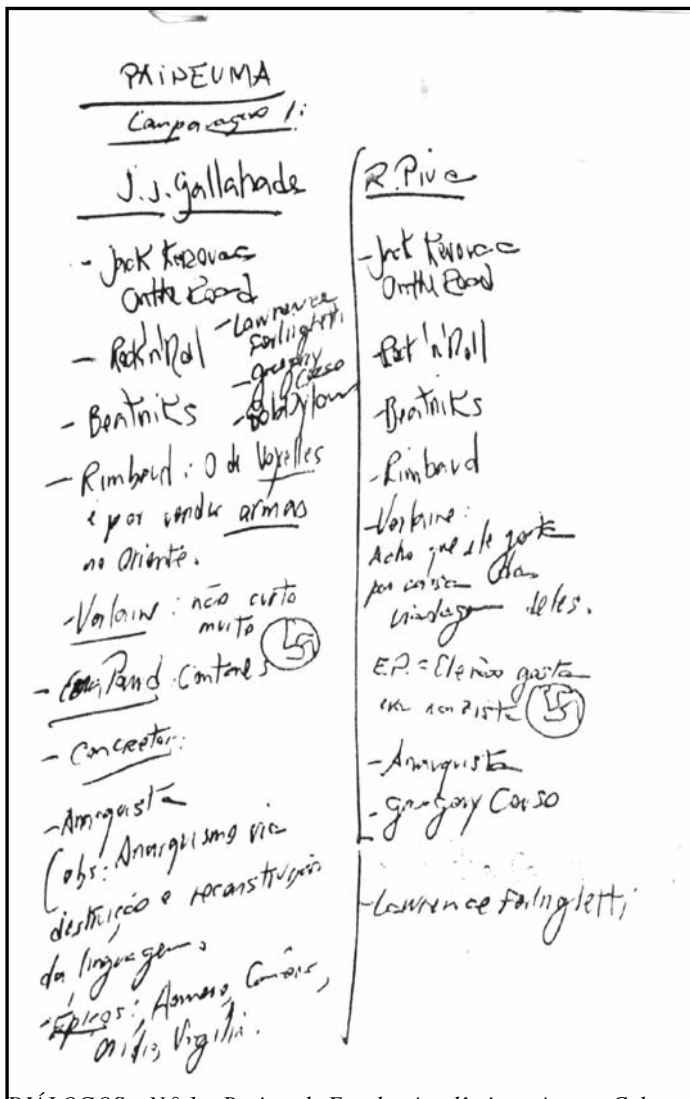 PAIDEUMA
Comparação 1:
J.J. Gallahade
- Jack Kerouac
On the Road
- Rock'n'Roll
- Lawrence
Ferlinghetti
- Gregory
Corso
- Bob Dylan
- Beatniks
- Rimbaud: O de Voyelles
e por vender armas
no Oriente.
- Verlaine: não curto
muito
- Ezra Pound: Cantares
- Concretos:
- Anarquista
(obs: Anarquismo via
destruição e reconstrução
da linguagem.
- Épicos: Homero, Camões,
Ovídio, Virgílio.
R. Piva
- Jack Kerouac
On the Road
- Rock'n'Roll
- Beatniks
- Rimbaud
- Verlaine:
Acho que ele gosta
por causa da
viadagem deles.
E.P. = Ele não gosta
era nazista
- Anarquista
- Gregory Corso
- Lawrence Ferlingletti